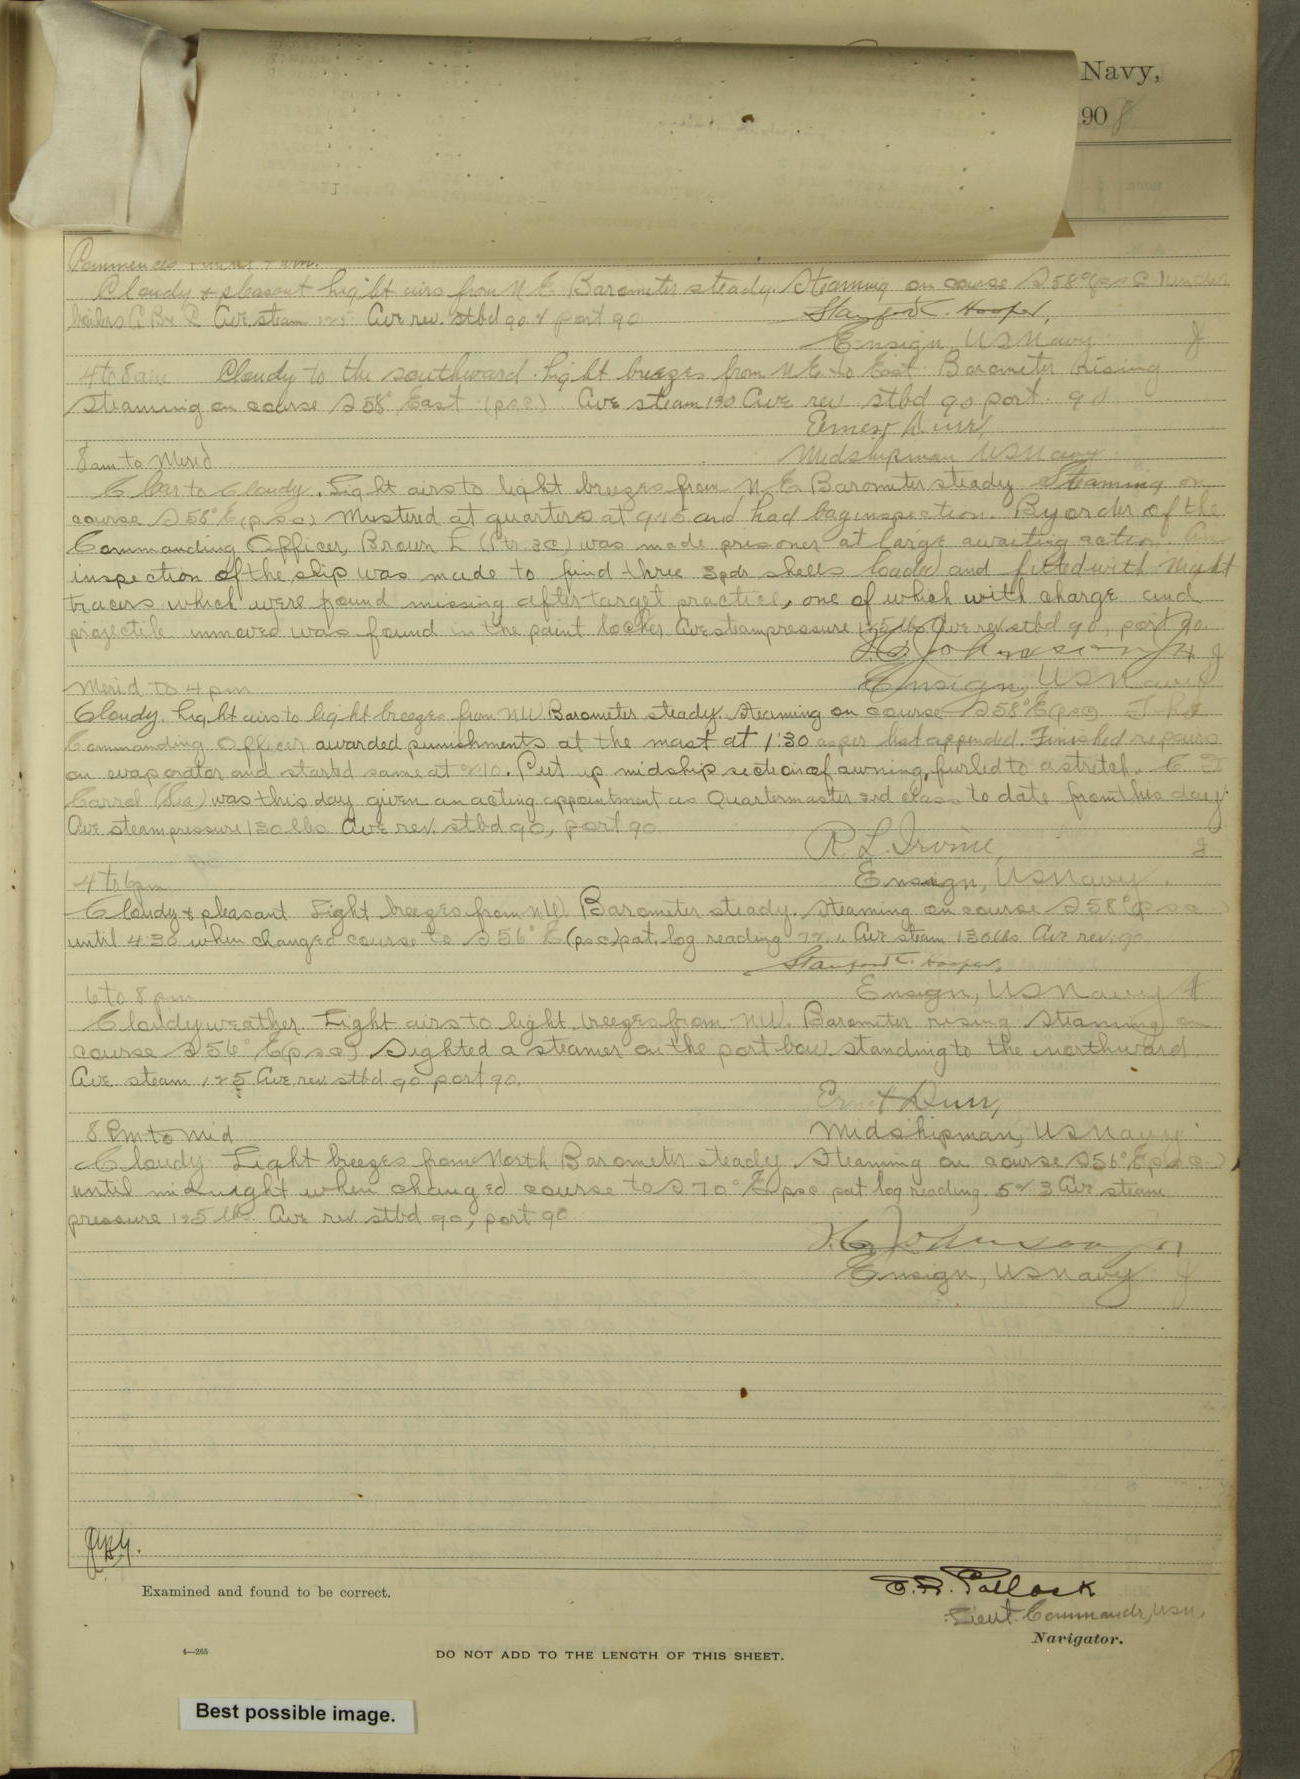 Navy,
1908
Commences and until 4 am.
Cloudy & pleasant Light airs from N E Barometer steady. Steaming on course S 58° E (p s c) under
boilers A B & C Ave steam 125 Ave rev. stbd 90 & port 90
Stanford C. Hooper,
Ensign, US Navy
4 to 8 am Cloudy to the southward. Light breezes from NE to East. Barometer rising
Steaming on course S 58° East (psc) Ave steam 130 Ave rev stbd 90 port 90
Ernest Durr,
Midshipman US Navy
8 am to Merid
Clear to Cloudy. Light airs to light breezes from N E Barometer steady Steaming on
course S 58° E (p s c) Mustered at quarters at 9:15 and had bag inspection. By order of the
Commanding Officer, Brown L (Ptr. 3c) was made prisoner at large awaiting action. An
inspection of the ship was made to find three 3 pdr shells loaded and fitted with Night
tracers which were found missing after target practice, one of which with charge and
projectile unmoved was found in the paint locker Ave steam pressure 125 lbs Ave rev stbd 90, port 90.
Johnson Jr
Ensign, US Navy
Merid to 4 pm
Cloudy. Light airs to light breezes from NW Barometer steady. Steaming on course S 58° E (psc) The
Commanding Officer awarded punishments at the mast at 1:30 as per list appended. Finished repairs
on evaporator and started same at 2:10. Put up midship section of awning, furled to a stretch. C. T
Carrol (Sea) was this day given an acting appointment as Quartermaster 3rd class to date from this day.
Ave steam pressure 130 lbs Ave rev. stbd 90, port 90
R. L. Irvine,
Ensign, US Navy.
4 to 6 pm
Cloudy & pleasant Light breezes from NW Barometer steady. Steaming on course S 58° E (p s c)
until 4:30 when changed course to S 56° E (psc) pat. log reading Ave steam 130 lbs Ave rev. 90
Stanford C. Hooper,
Ensign, US Navy
6 to 8 pm
Cloudy weather. Light airs to light breezes from NW. Barometer rising Steaming on
course S 56° E (p s c) Sighted a steamer on the port bow standing to the northward
Ave steam 125 Ave rev stbd 90 port 90.
Ernest Durr,
Midshipman, US Navy
8 Pm to Mid
Cloudy Light breezes from North Barometer steady Steaming on course S 56° E (p s c)
until midnight when changed course to S 70° E psc pat log reading 52.3 Ave steam
pressure 125 lbs Ave rev stbd 90, port 90
Johnson Jr
Ensign, US Navy
Examined and found to be correct.
Lieut. Commander, USN.
Navigator.
4—265
DO NOT ADD TO THE LENGTH OF THIS SHEET.
Best possible image.